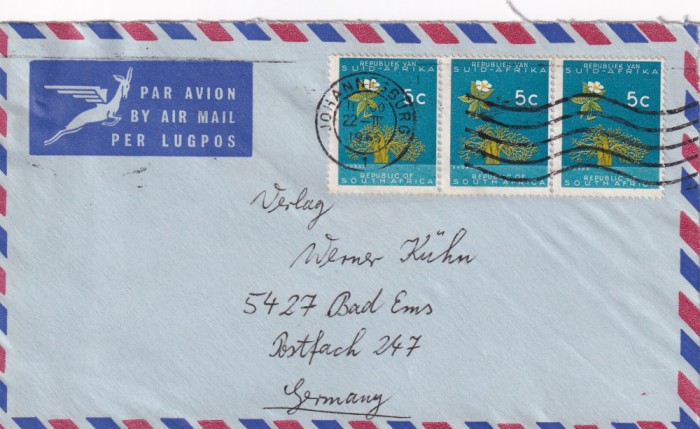 PAR AVION
BY AIR MAIL
PER LUGPOS
REPUBLIEK VAN
SUID-AFRIKA
5c
REPUBLIC OF
SOUTH AFRICA
REPUBLIEK VAN
SUID-AFRIKA
5c
REPUBLIC OF
SOUTH AFRICA
REPUBLIEK VAN
SUID-AFRIKA
5c
REPUBLIC OF
SOUTH AFRICA
JOHANNESBURG
22 II
Verlag
Werner Kühn
5427 Bad Ems
Postfach 247
Germany